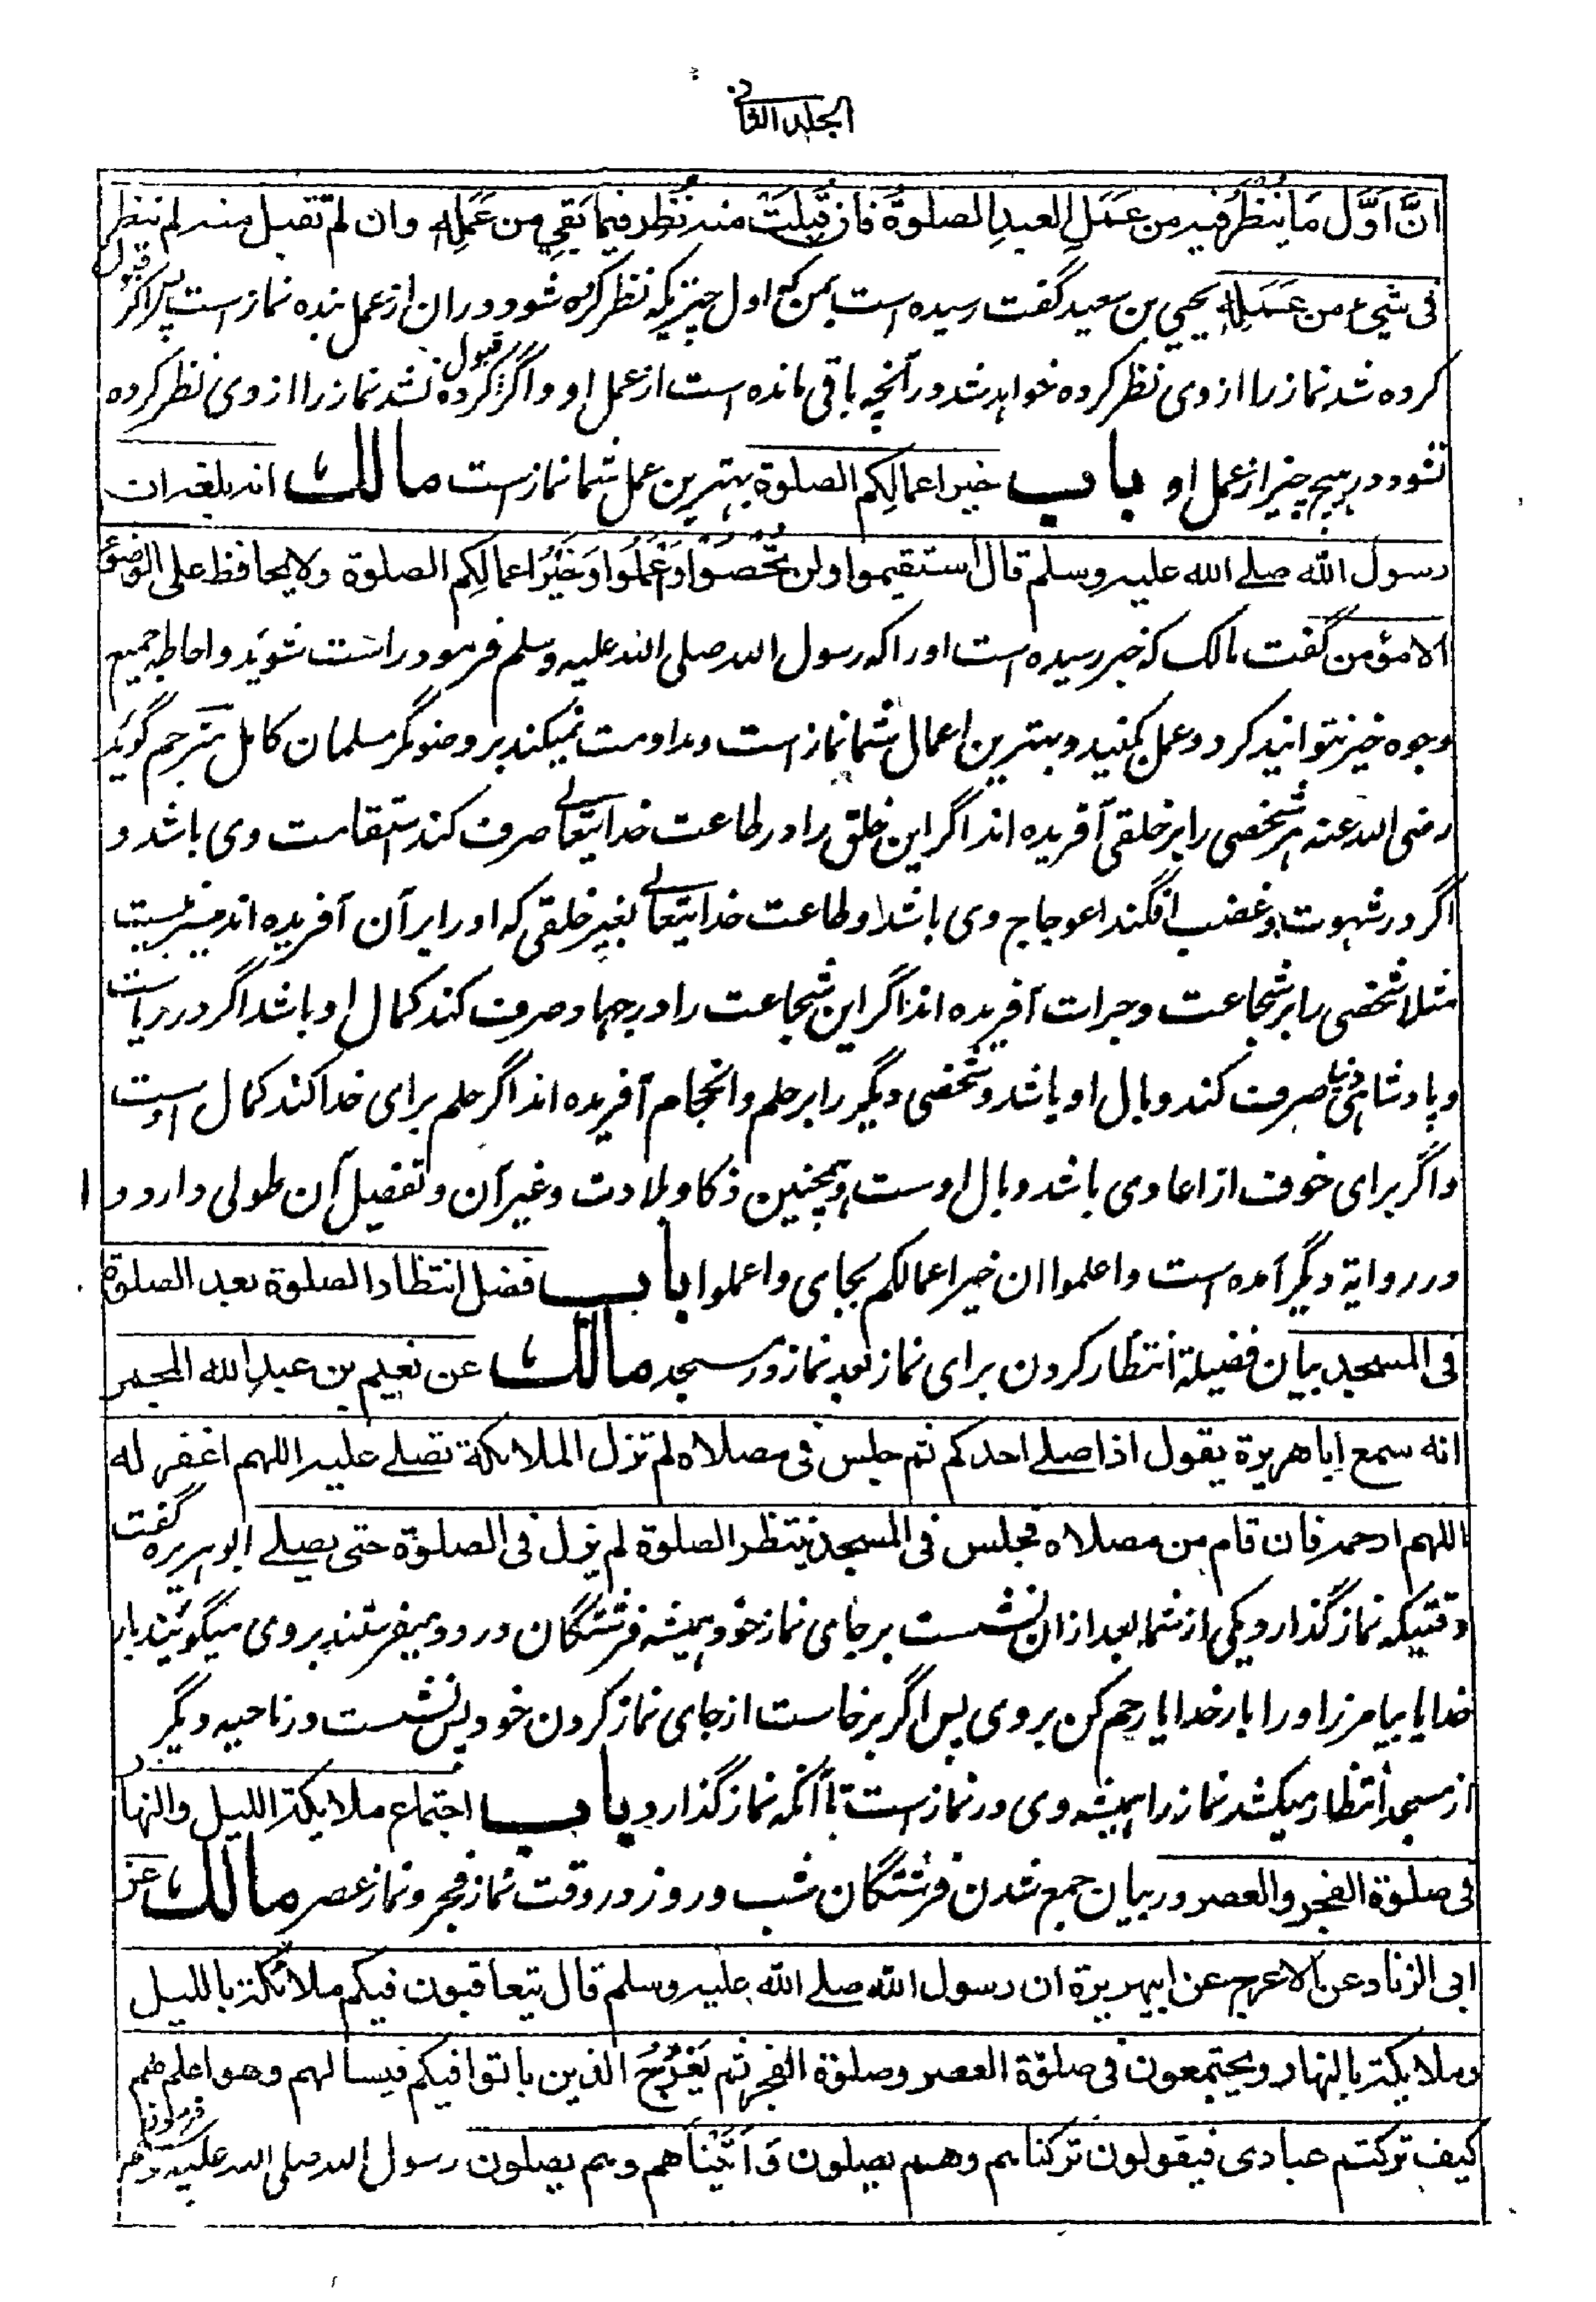 الجلد الثانی
انَّ اَوَّل مَا يُنْظَرُ فيه من عَمَلِ العبدِ الصلوةُ فان قُبِلَتْ منه نُظِر فيما بَقِيَ من عَمَلِه وان لم تقبل منه لم ينظر
فی شیء من عَمَلِه یحیی بن سعید گفت رسیده است بمن که اول چیزیکه نظر کرده شود دران از عمل بنده نماز است پس اگر قبول
کرده شد نماز را از وی نظر کرده خواهد شد در آنچه باقی مانده است از عمل او و اگر قبول کرده نشد نماز را از وی نظر کرده
نشود در هیچ چیز از عمل او باب خیر اعمالِکم الصلوة بهترین عمل شما نماز است مالك انه بلغه ان
رسول الله صلے الله علیه وسلم قال استقیموا ولن تُحْصُوْا وَاعْمَلُوا وَخَیْرُ اعمالِکم الصلوة ولا یحافظ علی الوضوء
الا مؤمن گفت مالک که خبر رسیده است او را که رسول الله صلی الله علیه وسلم فرمود راست شوید و احاطه جمیع
وجوه خیر نتوانید کرد و عمل کنید و بهترین اعمال شما نماز است و مداومت نمیکند بر وضو مگر مسلمان کامل مترجم گوید
رضی الله عنه هر شخصی را بر خلقی آفریده اند اگر این خلق را در طاعت خدایتعالے صرف کند استقامت وی باشد و
اگر در شهوت و غضب افگند اعوجاج وی باشد و طاعت خدایتعالے بغیر خلقی که او را بر آن آفریده اند میسر نیست
مثلا شخصی را بر شجاعت و جرات آفریده اند اگر این شجاعت را در جهاد صرف کند کمال او باشد اگر در ریاست
و پادشاهی دنیا صرف کند وبال او باشد و شخصی دیگر را بر حلم و انجام آفریده اند اگر حلم برای خدا کند کمال اوست
و اگر برای خوف از اعادی باشد وبال اوست و همچنین ذکا و بلادت و غیر آن و تفصیل آن طولی دارد و
در روایة دیگر آمده است و اعلموا ان خیر اعمالکم بجای و اعملوا باب فضل انتظار الصلوة بعد الصلوة
فی المسجد بیان فضیلة انتظار کردن برای نماز بعد نماز در مسجد مالك عن نعیم بن عبد الله المجمر
انه سمع ابا هریرة یقول اذا صلے احدکم ثم جلس فی مصلاه لم تزل الملائکة تصلے علیه اللهم اغفر له
اللهم ارحمه فان قام من مصلاه فجلس فی المسجد ینتظر الصلوة لم یزل فی الصلوة حتی یصلے ابوهریره گفت
وقتیکه نماز گذارد یکی از شما بعد ازان نشست بر جای نماز خود همیشه فرشتگان درود میفرستند بر وی میگویند بار
خدایا بیامرز او را بار خدایا رحم کن بر وی پس اگر برخاست از جای نماز کردن خود پس نشست در ناحیه دیگر
از مسجد انتظار میکشد نماز را همیشه وی در نماز است تا آنکه نماز گذارد باب اجتماع ملایکة اللیل والنهار
فی صلوة الفجر والعصر در بیان جمع شدن فرشتگان شب و روز در وقت نماز فجر و نماز عصر مالك عن
ابی الزناد عن الاعرج عن ابیهریرة ان رسول الله صلے الله علیه وسلم قال یتعاقبون فیکم ملائکة باللیل
وملایکة بالنهار ویجتمعون فی صلوة العصر وصلوة الفجر ثم یَعْرُجُ الذین باتوا فیکم فیسألهم وهو اعلم بهم
کیف ترکتم عبادی فیقولون ترکناهم وهم یصلون وَاَتَیْنَاهم وهم یصلون رسول الله صلی الله علیه وسلم فرمود